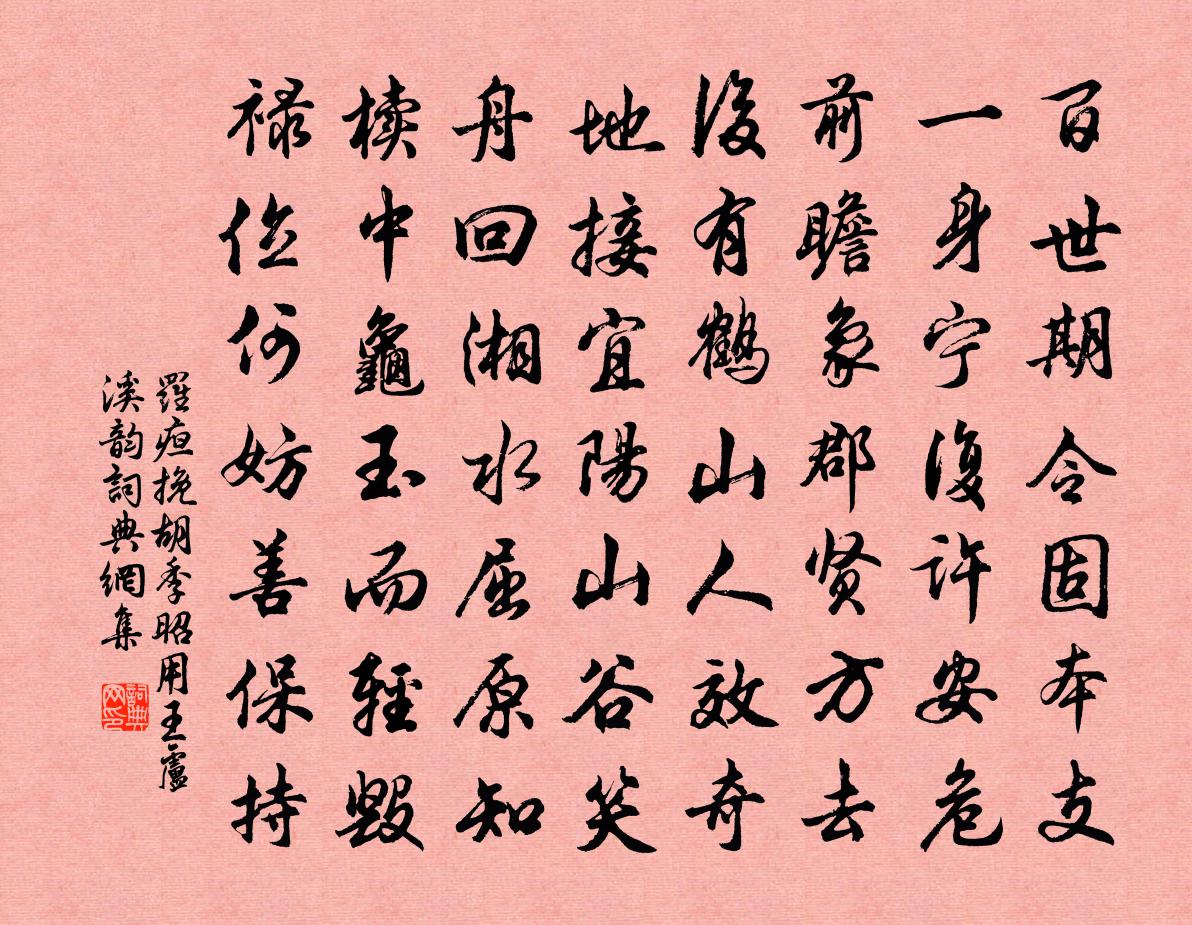 百世期令固本支
一身宁復許安危
前瞻象郡贤方去
後有鶴山人效奇
地接宜陽山谷笑
舟回湘水屈原知
櫝中龜玉而輕毀
禄位何妨善保持
羅疸挽胡季昭用王盧
溪韵詞典網集
詞典
网印